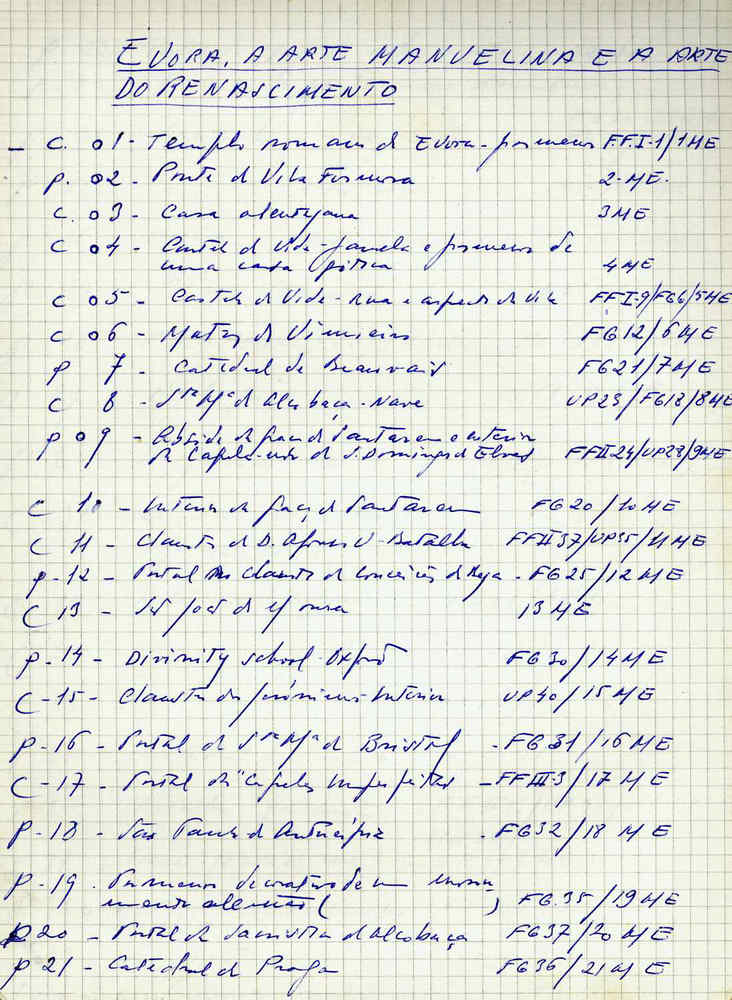 EVORA, A ARTE MANUELINA E A ARTE
DO RENASCIMENTO
- C. 01 - Templo romano d Evora - pormenor F.F.I-1/1ME
p. 02 - Ponte d Vila Formosa 2-ME.
C. 03 - Casa alentejana 3ME
C 04 - Castel d Vide - janela e pormenor de
uma casa gótica 4ME
C 05 - Castelo d Vide - Rua e aspecto da Vila FFI-9/FG6/5ME
C 06 - Matriz d Vimieiro FG12/6ME
p 7 - Catedral de Beauvais FG21/7ME
C 8 - Sta Mª d Alcobaça - Nave UP23/FG18/8ME
p 09 - Abside da Graça d Santarem e interior
da Capela-mor d S. Domingos d Elvas FFII24/UP28/9ME
C 10 - Interior da Graça d Santarem FG20/10ME
C 11 - Claustro d D. Afonso V - Batalha FFII37/UP35/11ME
p-12 - Portal no Claustro da Conceição d Beja - FG25/12ME
C 13 - 13ME
p-14 - Divinity school - Oxford FG30/14ME
C-15 - Claustro dos Jerónimos Interior UP40/15ME
p-16 - Portal d Sta Mª d Bristol - FG31/16ME
C-17 - Portal das Capelas Imperfeitas - FFIII3/17ME
p-18 - São Paulo d Antuérpia - FG32/18ME
p-19. Pormenor decorativo de um monu-
mento alemão ( ) FG.35/19ME
p 20 - Portal da Sacristia d Alcobaça FG37/20ME
p 21 - Catedral d Praga FG36/21ME